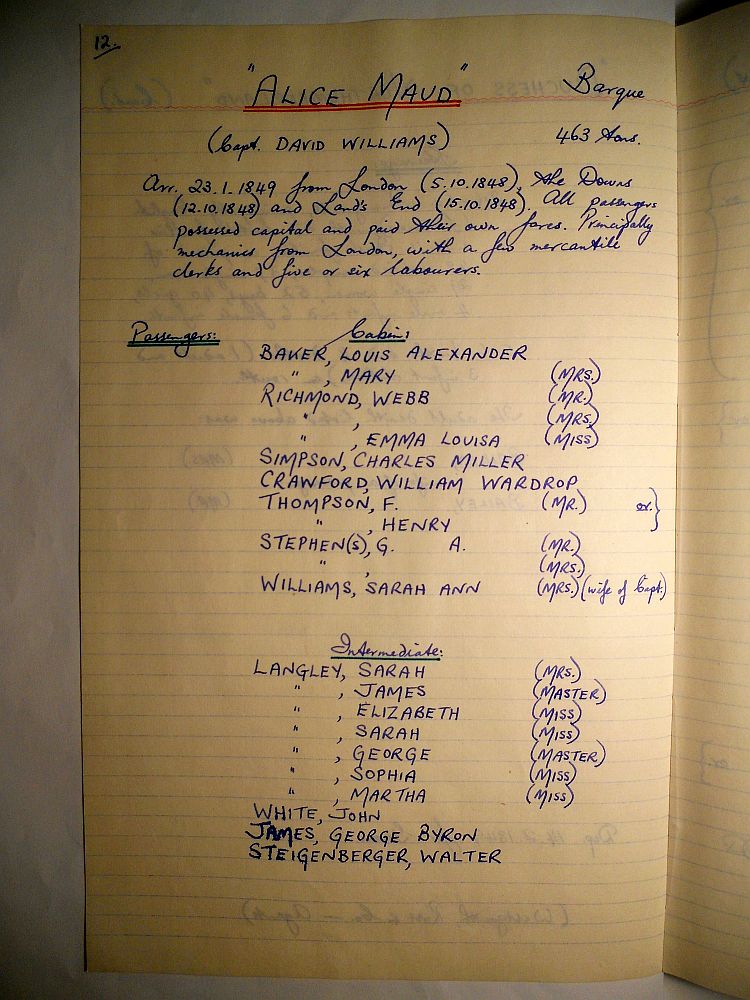 12.
"ALICE MAUD" Barque
(Capt. DAVID WILLIAMS) 463 tons.
Arr. 23.1.1849 from London (5.10.1848), the Downs
(12.10.1848) and Land's End (15.10.1848). All passengers
possessed capital and paid their own fares. Principally
mechanics from London, with a few mercantile
clerks and five or six labourers.
Passengers: Cabin:
BAKER, LOUIS ALEXANDER
" , MARY (MRS.)
RICHMOND, WEBB (MR.)
" , (MRS.)
" , EMMA LOUISA (MISS)
SIMPSON, CHARLES MILLER
CRAWFORD, WILLIAM WARDROP
THOMPSON, F. (MR.) or }
" , HENRY
STEPHEN(S), G. A. (MR.)
" , (MRS.)
WILLIAMS, SARAH ANN (MRS.) (wife of Capt.)
Intermediate:
LANGLEY, SARAH (MRS.)
" , JAMES (MASTER)
" , ELIZABETH (MISS)
" , SARAH (MISS)
" , GEORGE (MASTER)
" , SOPHIA (MISS)
" , MARTHA (MISS)
WHITE, JOHN
JAMES, GEORGE BYRON
STEIGENBERGER, WALTER